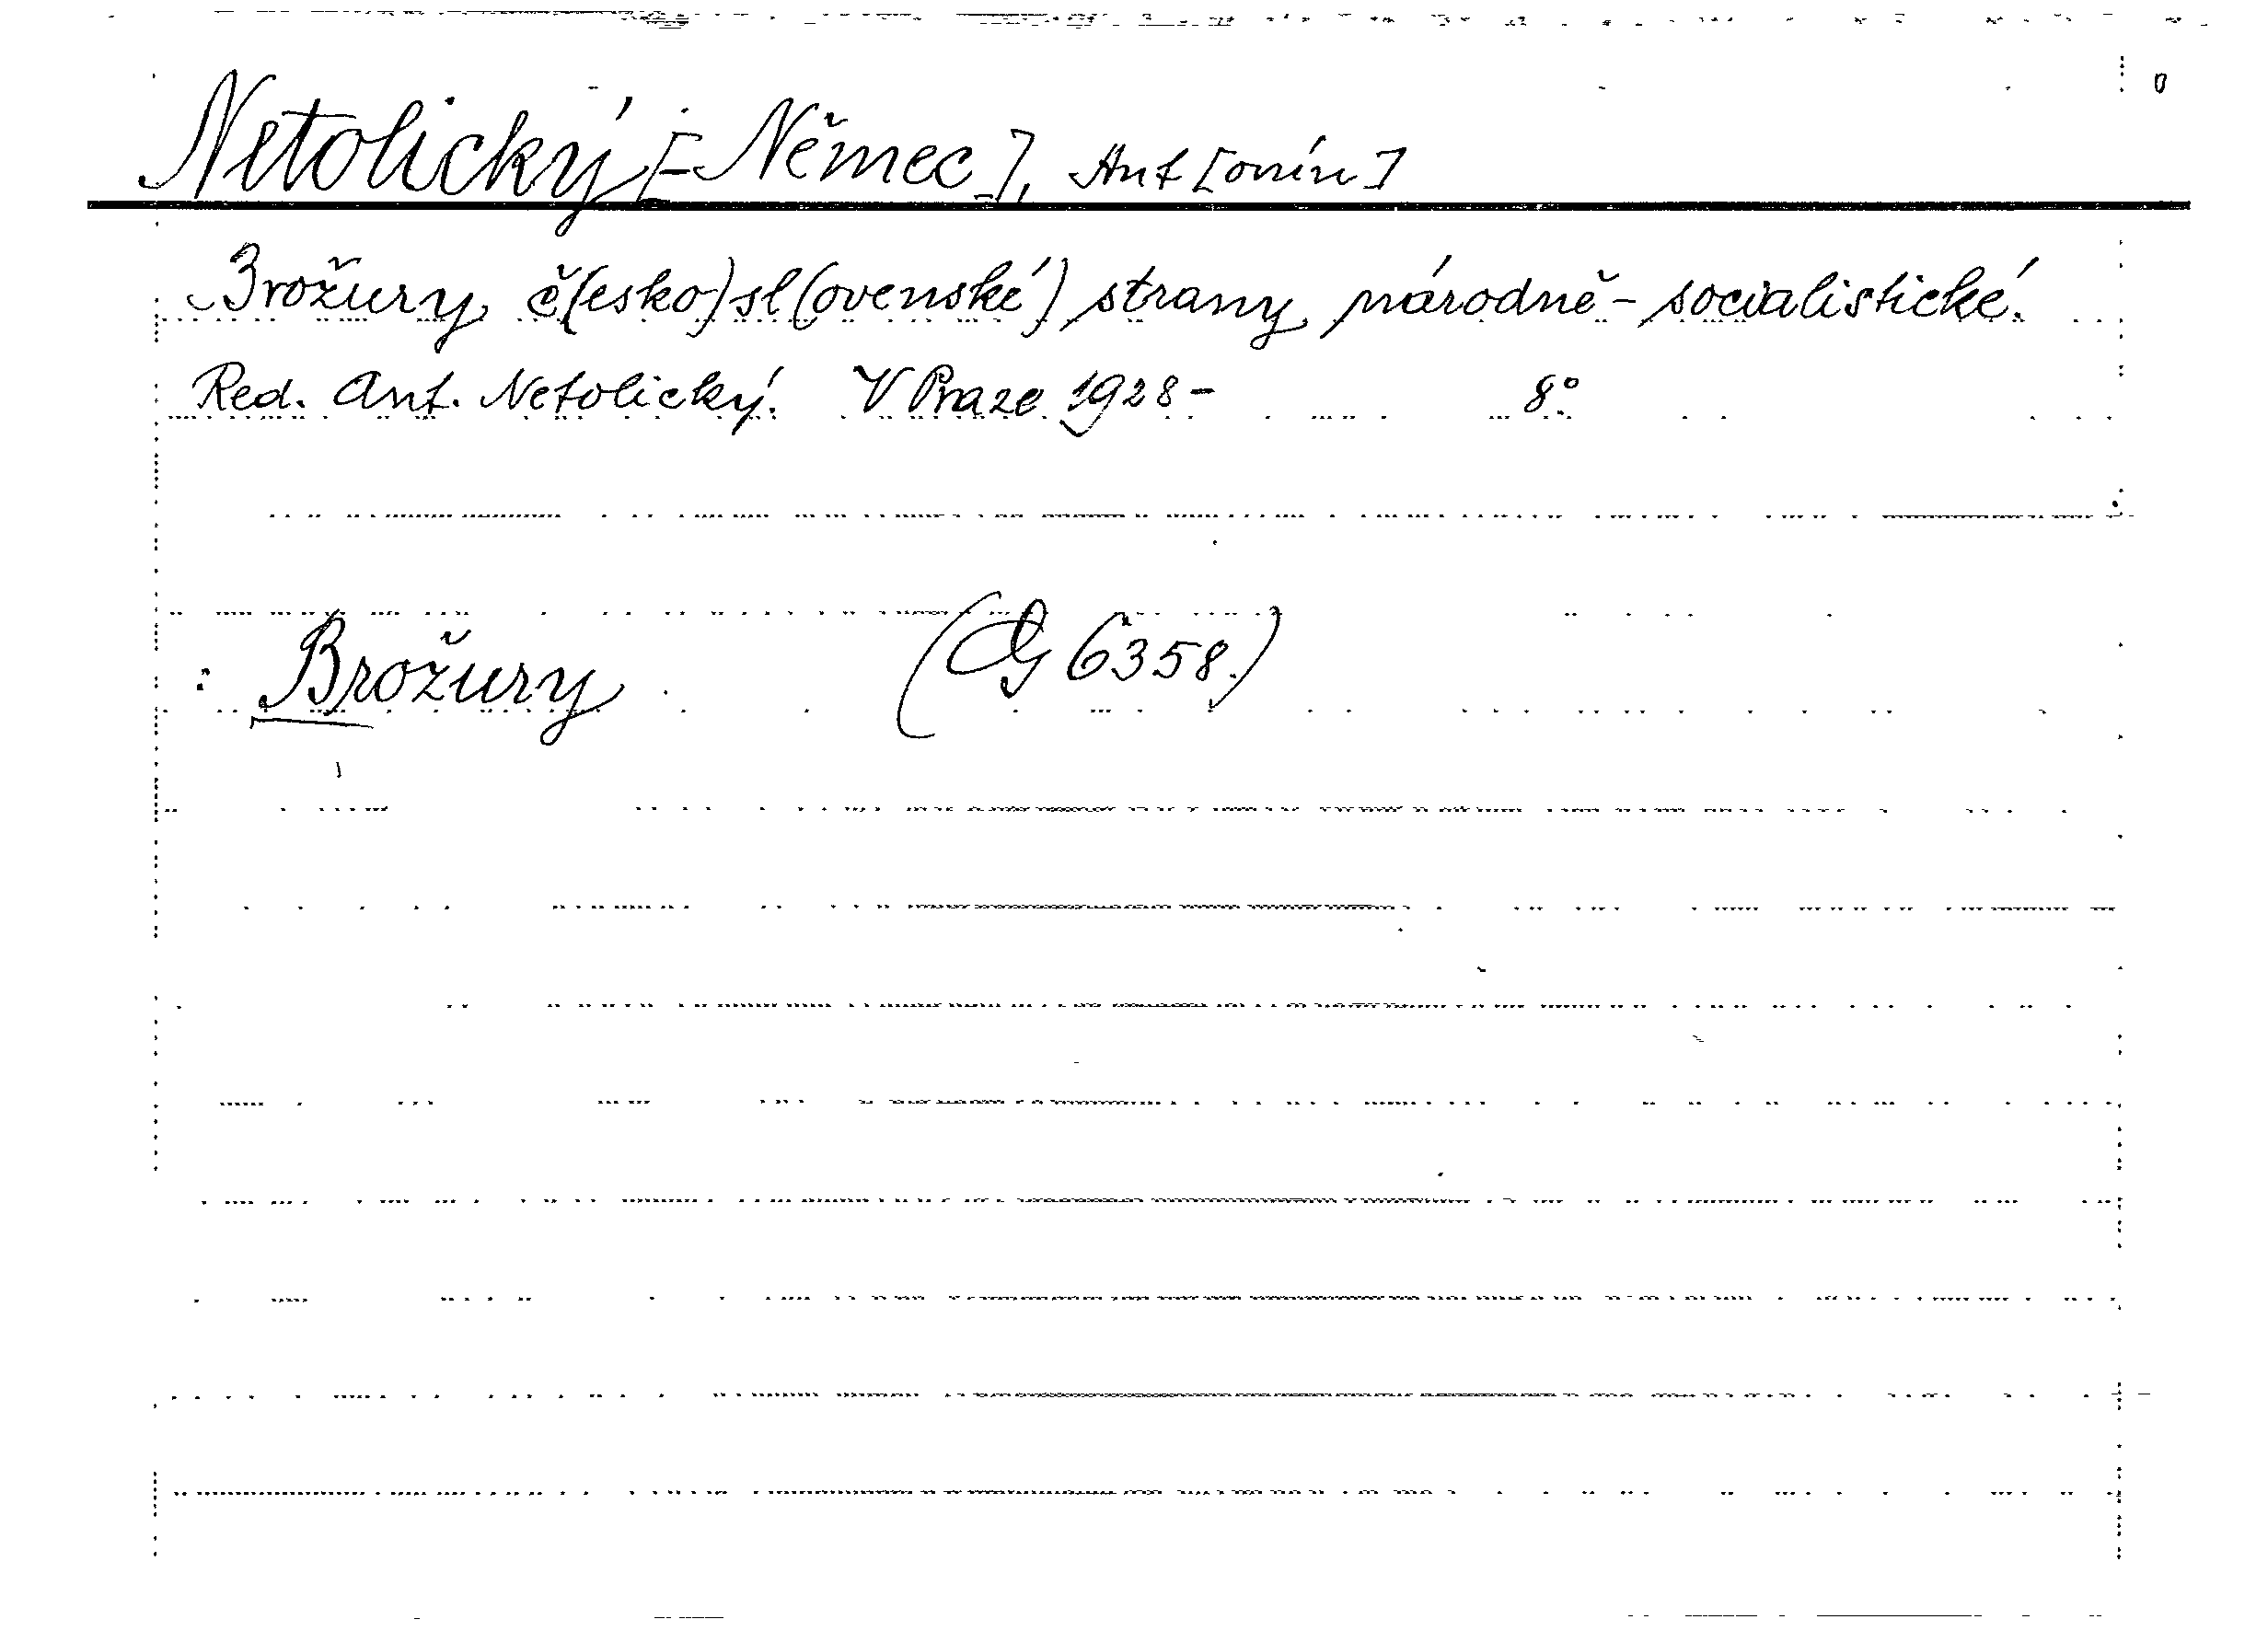 Netolický [-Němec], Ant[onín]
Brožury č(esko)sl(ovenské) strany národně-socialistické.
Red. Ant. Netolický. V Praze 1928- 8°.
: Brožury (G 6358.)